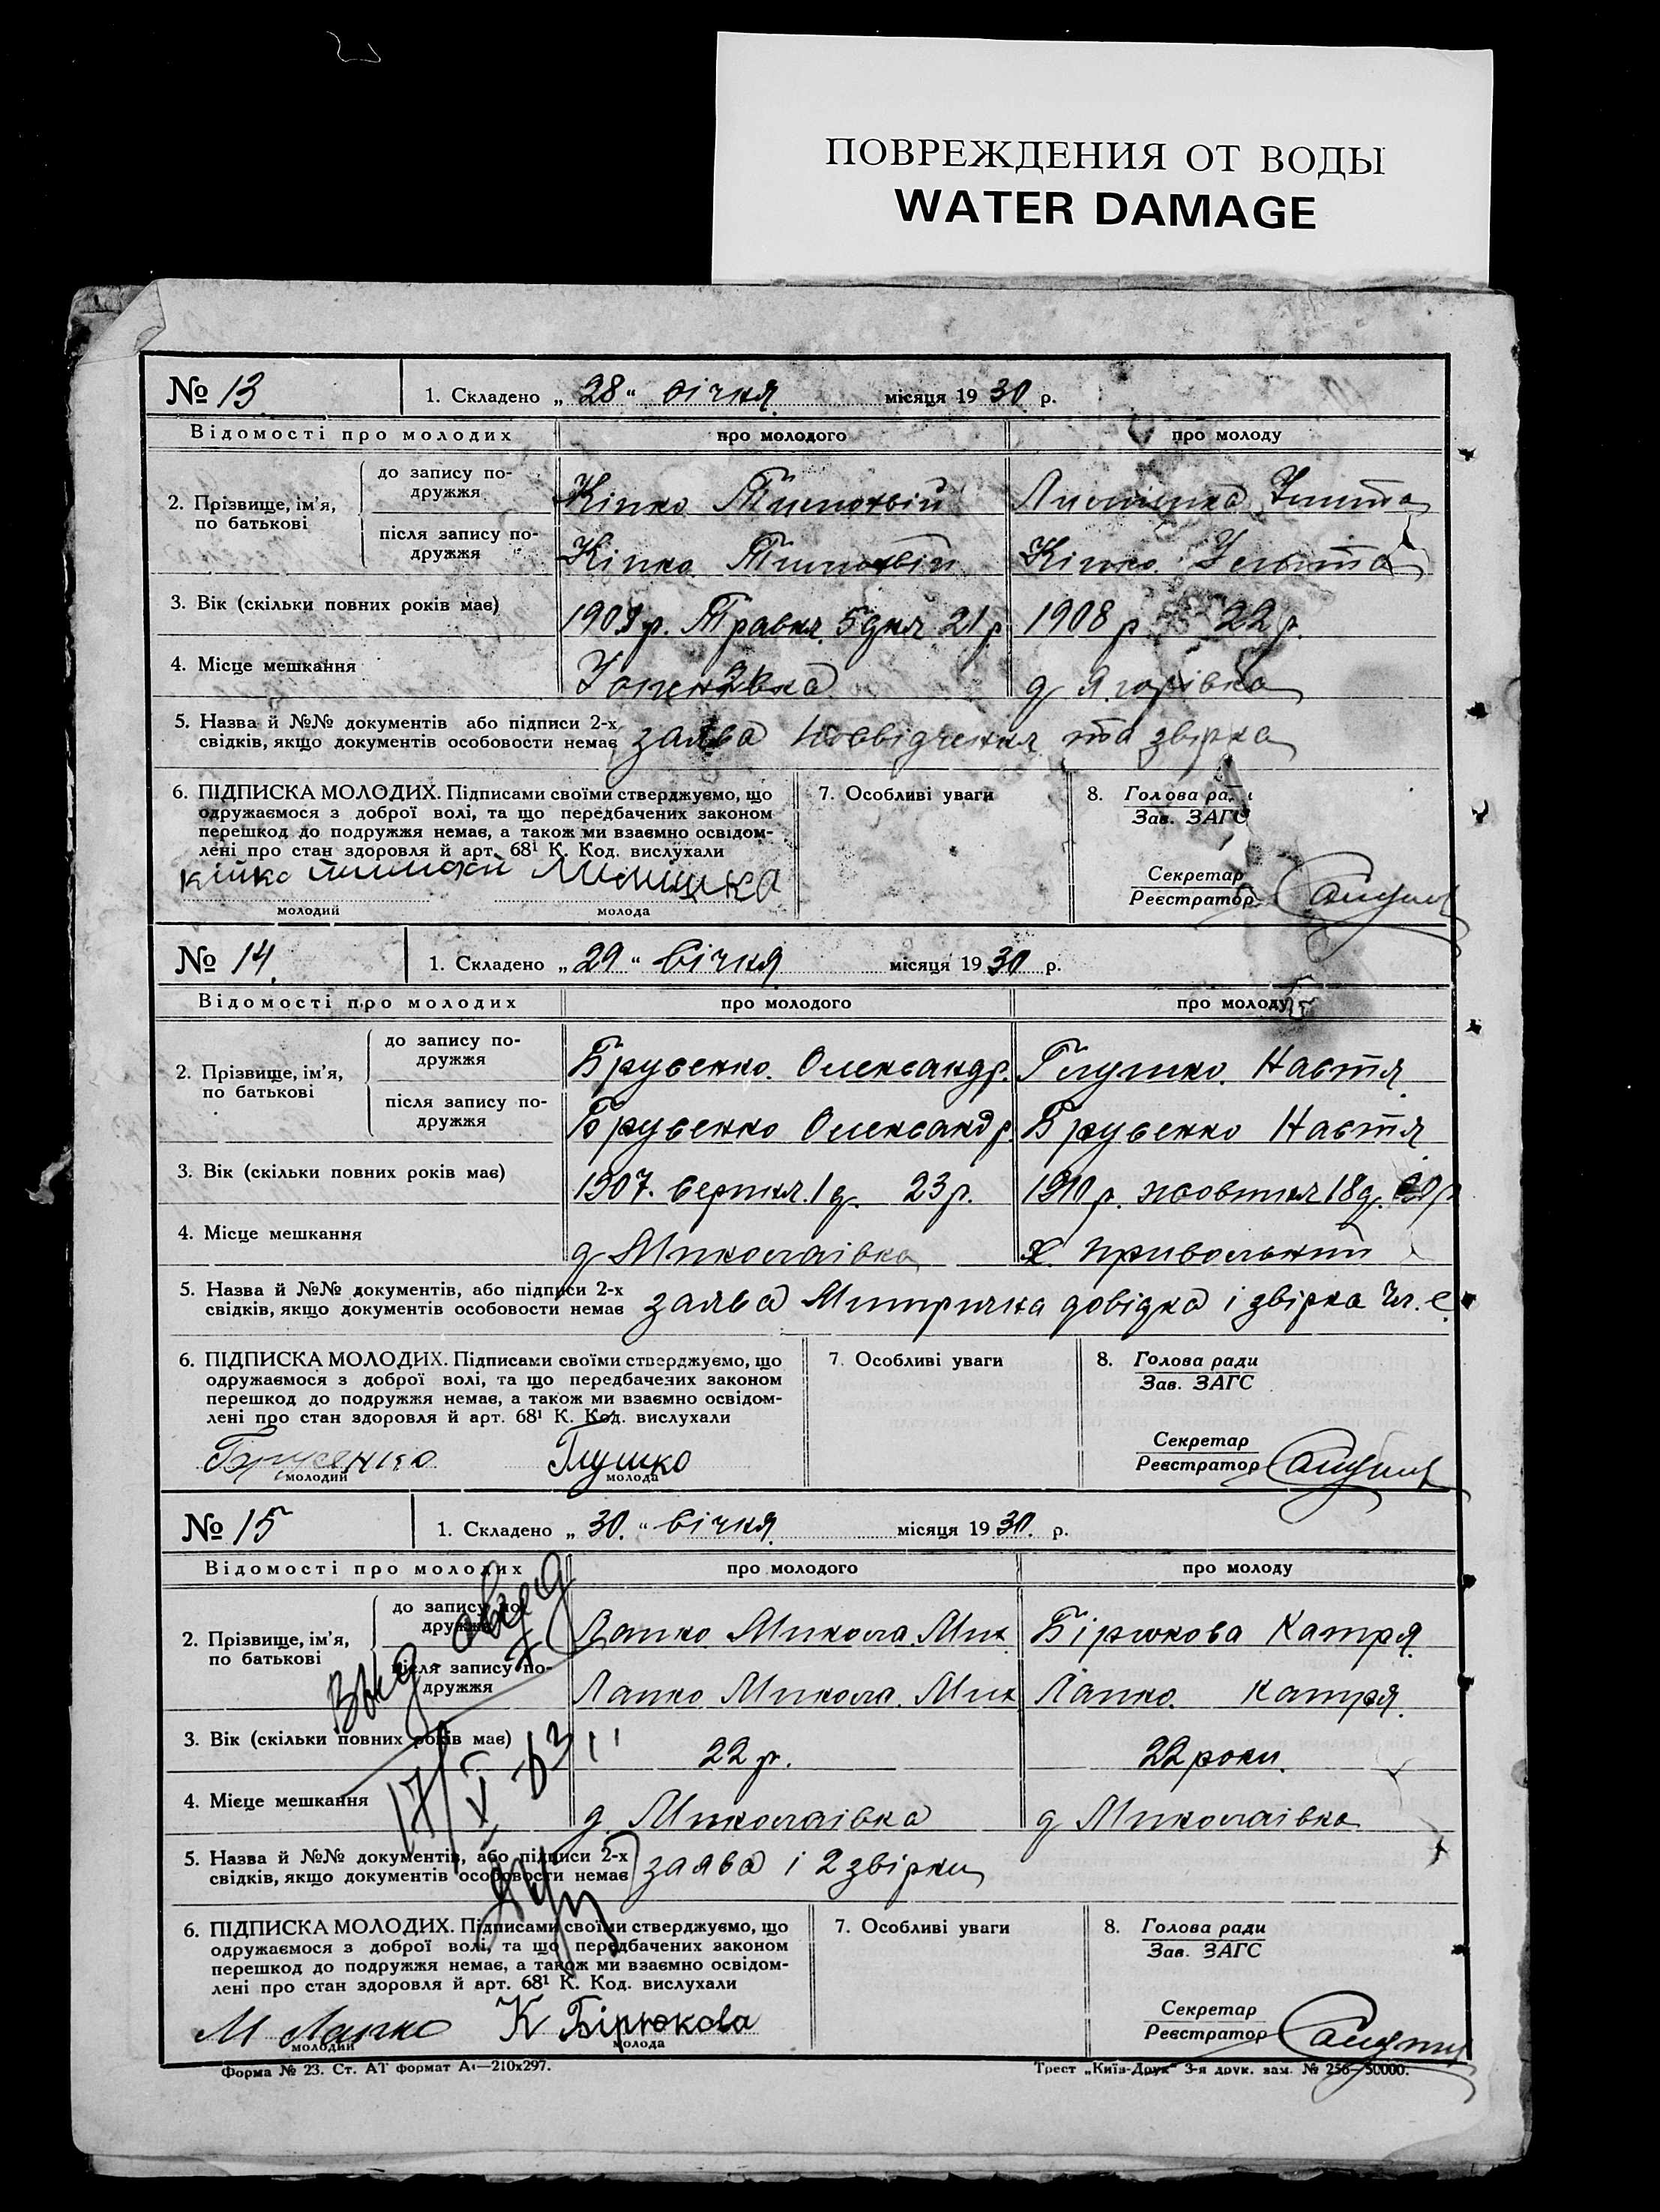 ПОВРЕЖДЕНИЯ ОТ ВОДЫ
WATER DAMAGE
№ 13. 1. Складено „ 28 “ січня місяця 19 30 р.
Відомості про молодих про молодого про молоду
2. Прізвище, ім'я, по батькові
до запису по-дружжя Кіпко Тимофій
після запису по-дружжя Кіпко Тимофій Кіпко
3. Вік (скільки повних років має) 1909 р. Травня 5 дня 21 р. 1908 р. 22 р.
4. Місце мешкання д
5. Назва й №№ документів або підписи 2-х
свідків, якщо документів особовости немає заява посвідчення та звірка
6. ПІДПИСКА МОЛОДИХ. Підписами своїми стверджуємо, що
одружаємося з доброї волі, та що передбачених законом
перешкод до подружжя немає, а також ми взаємно освідом-
лені про стан здоров​ля й арт. 68¹ К. Код. вислухали
7. Особливі уваги
8. Голова ра
Зав. ЗАГС
Секретар
Реєстратор
молодий молода
№ 14. 1. Складено „ 29 “ січня місяця 19 30 р.
Відомості про молодих про молодого про молоду
2. Прізвище, ім'я, по батькові
до запису по-дружжя Брусенко Олександр. Глушко Настя
після запису по-дружжя Брусенко Олександр Брусенко Настя
3. Вік (скільки повних років має) 1907. серпня 1 д. 23 р. 1910 р. жовтня 18 д. 20 р
4. Місце мешкання д Миколаівка х. Привольний
5. Назва й №№ документів, або підписи 2-х
свідків, якщо документів особовости немає заява Митрична довідка і звірка
6. ПІДПИСКА МОЛОДИХ. Підписами своїми стверджуємо, що
одружаємося з доброї волі, та що передбачених законом
перешкод до подружжя немає, а також ми взаємно освідом-
лені про стан здоровля й арт. 68¹ К. Код. вислухали
Брусенко Глушко
молодий молода
7. Особливі уваги
8. Голова ради
Зав. ЗАГС
Секретар
Реєстратор
№ 15 1. Складено „ 30. “ січня місяця 19 30. р.
Відомості про молодих про молодого про молоду
2. Прізвище, ім'я, по батькові
до запису по-дружжя Лапко Микола Мих Бірюкова Катря
після запису по-дружжя Лапко Микола Мих Лапко Катря
3. Вік (скільки повних років має) 22 р. 22 роки.
4. Місце мешкання д. Миколаівка д Миколаівка
5. Назва й №№ документів, або підписи 2-х
свідків, якщо документів особовости немає заява і 2 звірки
6. ПІДПИСКА МОЛОДИХ. Підписами своїми стверджуємо, що
одружаємося з доброї волі, та що передбачених законом
перешкод до подружжя немає, а також ми взаємно освідом-
лені про стан здоровля й арт. 68¹ К. Код. вислухали
М Лапко К Бірюкова
молодий молода
7. Особливі уваги
8. Голова ради
Зав. ЗАГС
Секретар
Реєстратор
Форма № 23. Ст. АТ формат А₄—210х297. Трест „Київ-Друк“ 3-я друк. зам. № 256—50000.